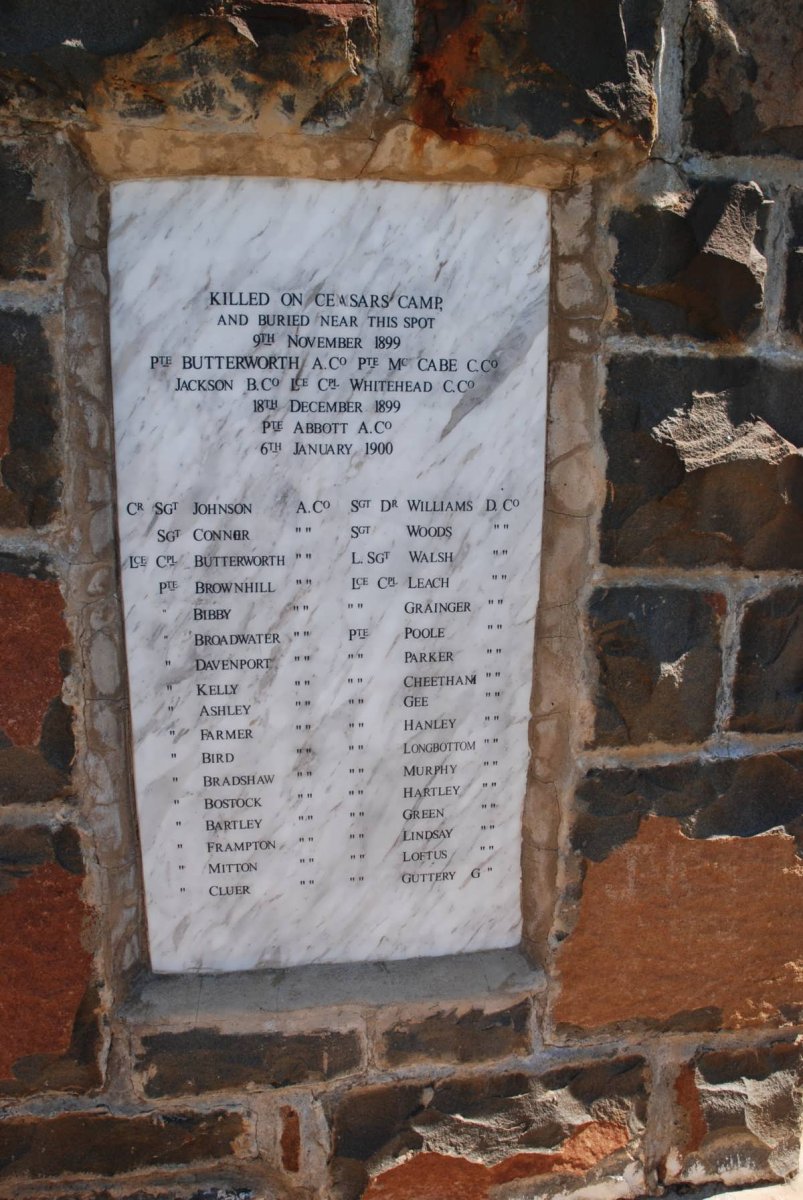 KILLED ON CEASARS CAMP,
AND BURIED NEAR THIS SPOT
9TH NOVEMBER 1899
PTE BUTTERWORTH A.CO PTE MC CABE C.CO
JACKSON B.CO LCE CPL WHITEHEAD C.CO
18TH DECEMBER 1899
PTE ABBOTT A.CO
6TH JANUARY 1900
CR SGT JOHNSON A.CO SGT DR WILLIAMS D.CO
SGT CONNOR " " SGT WOODS " "
LCE CPL BUTTERWORTH " " L.SGT WALSH " "
PTE BROWNHILL " " LCE CPL LEACH " "
" BIBBY " " " " GRAINGER " "
" BROADWATER " " PTE POOLE " "
" DAVENPORT " " " " PARKER " "
" KELLY " " " " CHEETHAM " "
" ASHLEY " " " " GEE " "
" FARMER " " " " HANLEY " "
" BIRD " " " " LONGBOTTOM " "
" BRADSHAW " " " " MURPHY " "
" BOSTOCK " " " " HARTLEY " "
" BARTLEY " " " " GREEN " "
" FRAMPTON " " " " LINDSAY " "
" MITTON " " " " LOFTUS " "
" CLUER " " " " GUTTERY G "